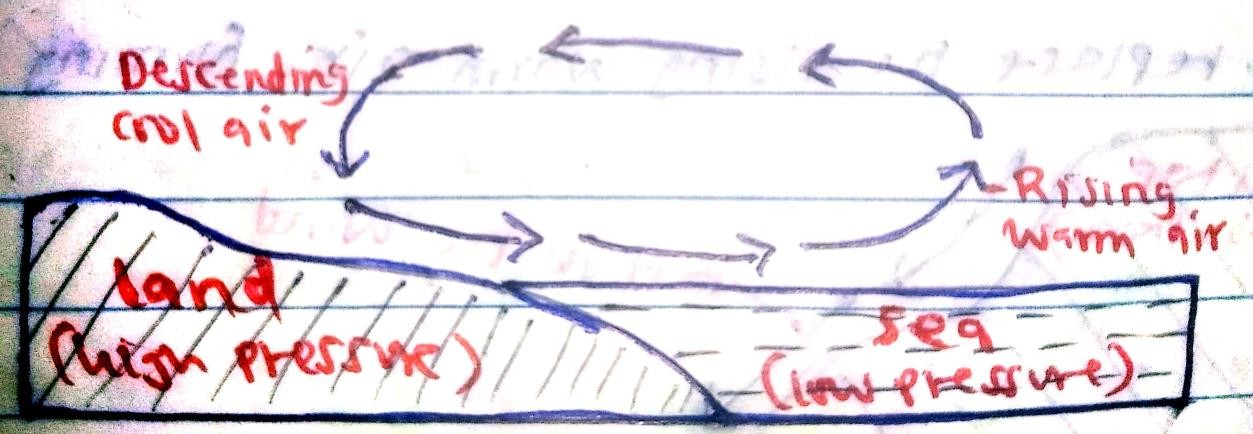 Descending
cool air
-Rising
warm air
land
(high pressure)
sea
(low pressure)